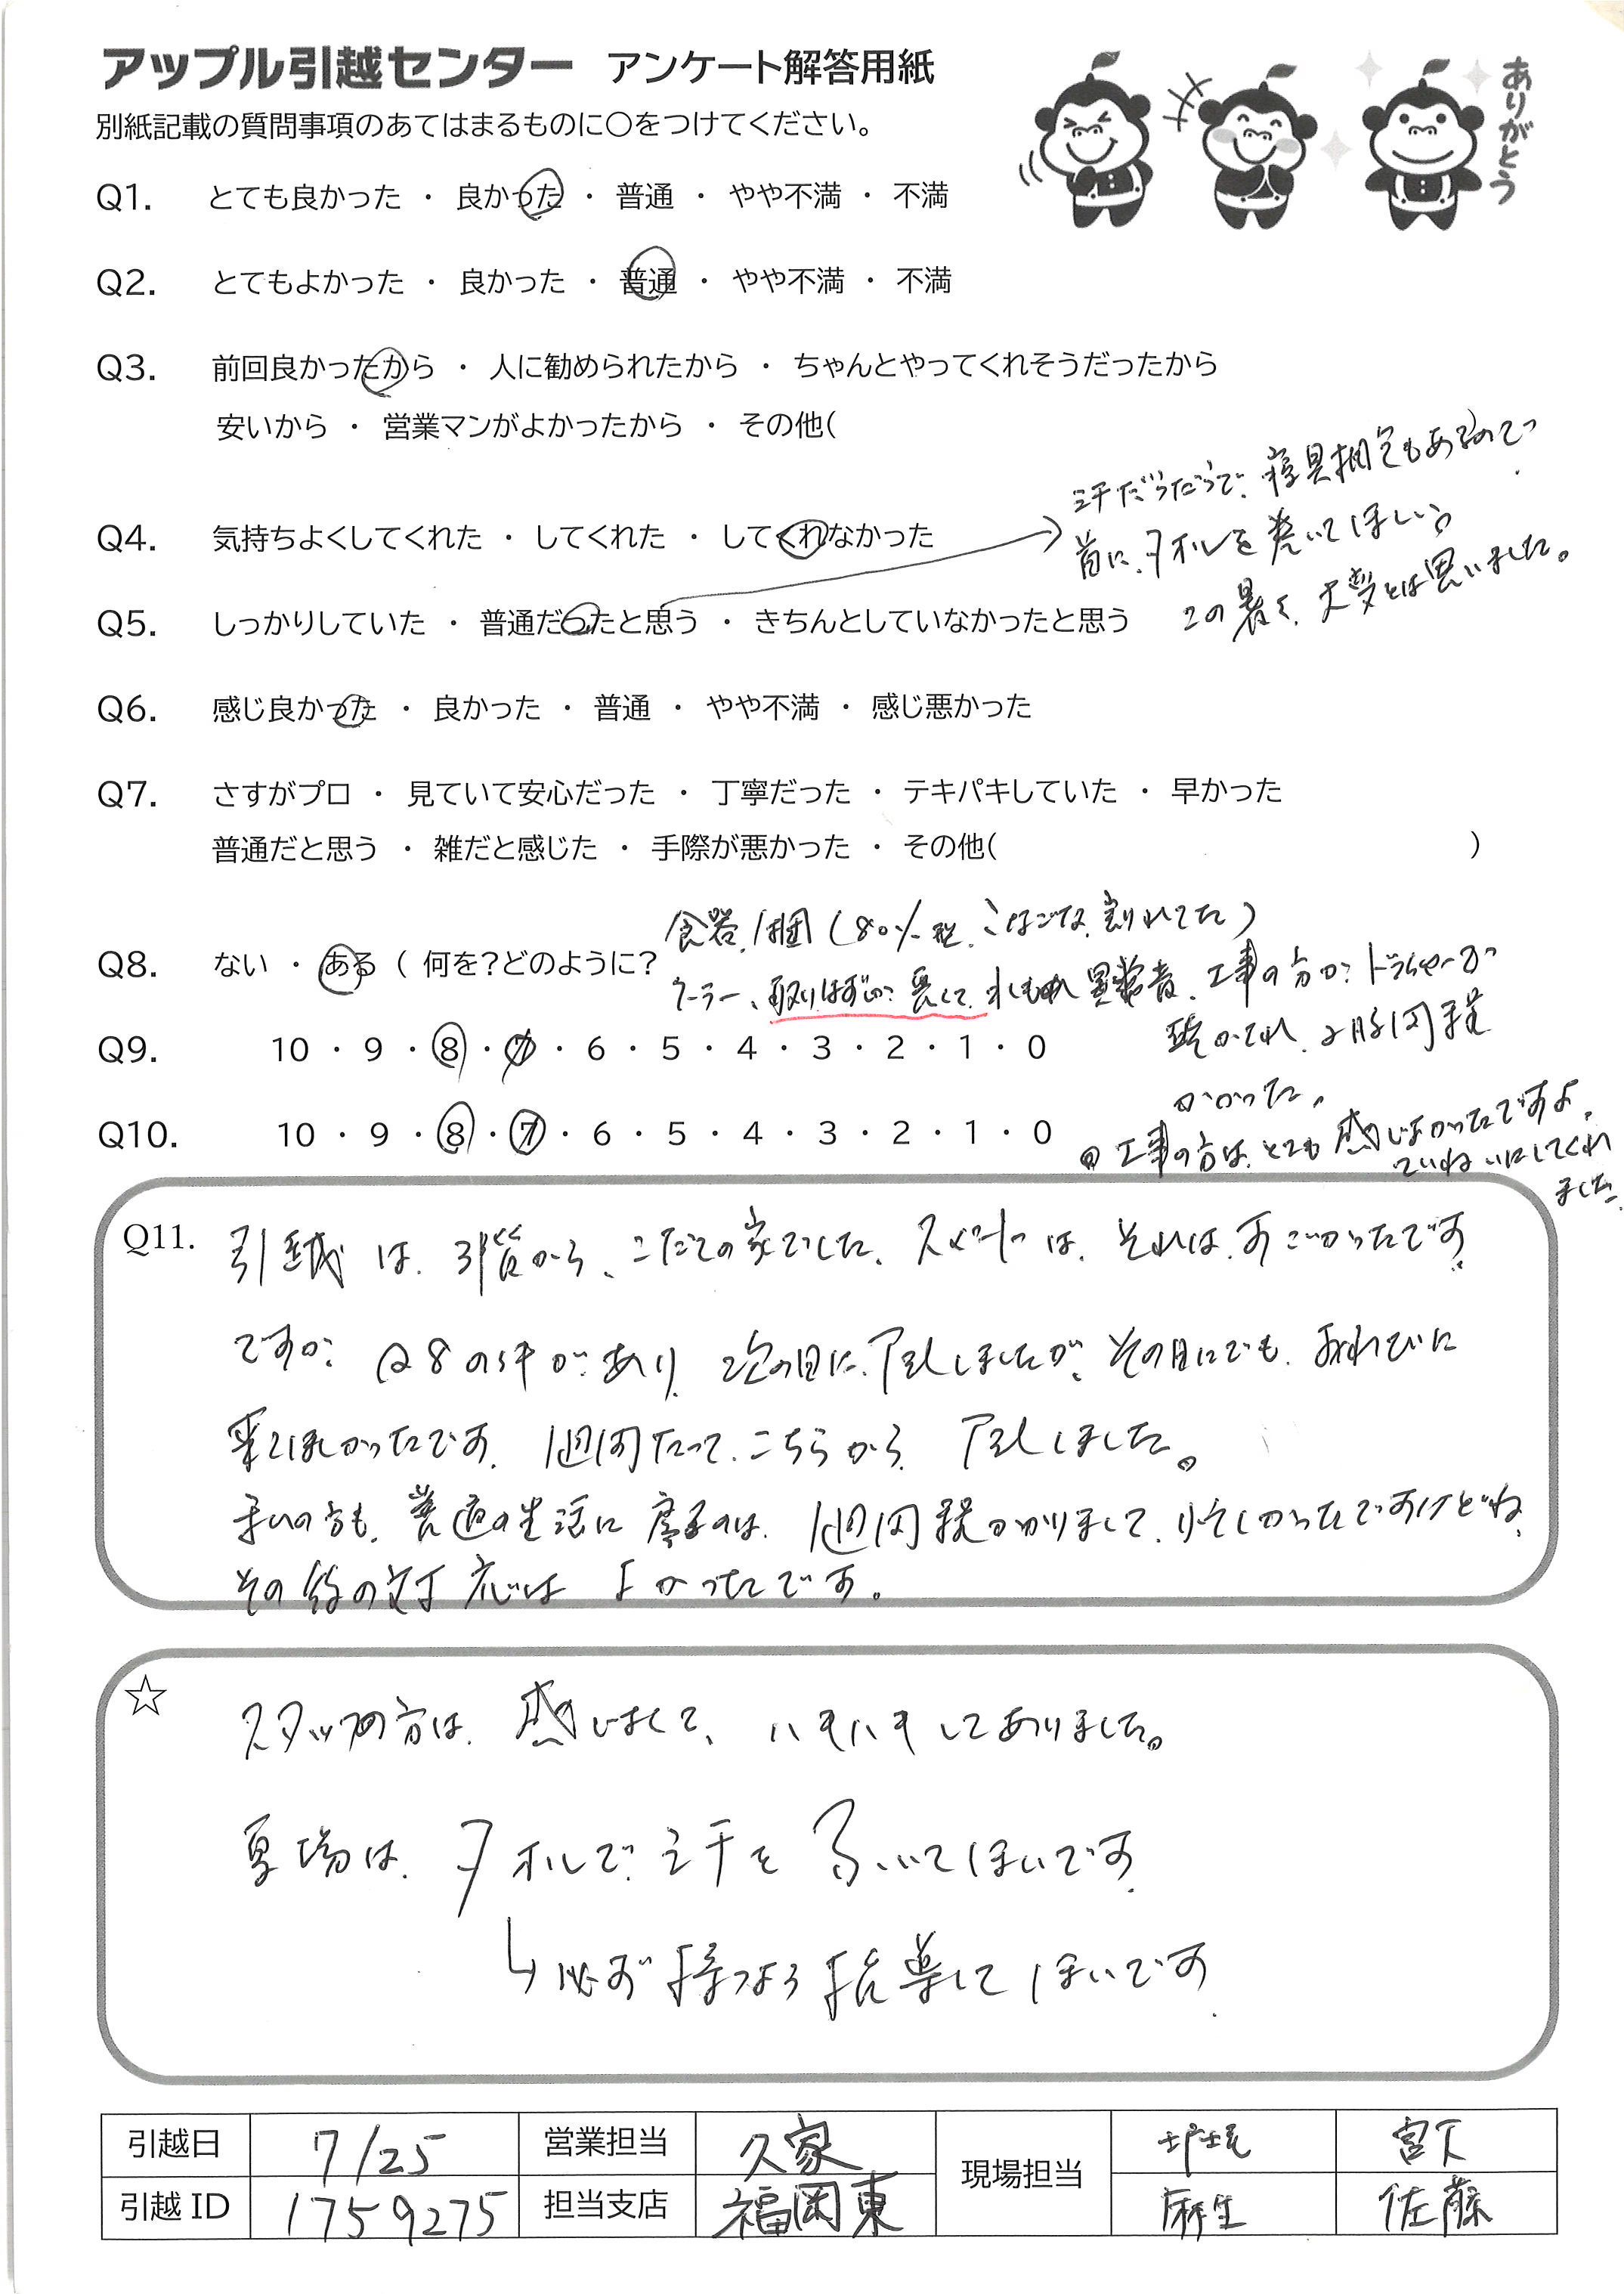 アップル引越センター アンケート解答用紙
ありがとう
別紙記載の質問事項のあてはまるものに〇をつけてください。
Q1. とても良かった ・ 良かった ・ 普通 ・ やや不満 ・ 不満
Q2. とてもよかった ・ 良かった ・ 普通 ・ やや不満 ・ 不満
Q3. 前回良かったから ・ 人に勧められたから ・ ちゃんとやってくれそうだったから
安いから ・ 営業マンがよかったから ・ その他(
汗だらだらで、寝具相当もあるので
首に、タオルを巻いてほしい。
この暑く、大変とは思いました。
Q4. 気持ちよくしてくれた ・ してくれた ・ してくれなかった
Q5. しっかりしていた ・ 普通だったと思う ・ きちんとしていなかったと思う
Q6. 感じ良かった ・ 良かった ・ 普通 ・ やや不満 ・ 感じ悪かった
Q7. さすがプロ ・ 見ていて安心だった ・ 丁寧だった ・ テキパキしていた ・ 早かった
普通だと思う ・ 雑だと感じた ・ 手際が悪かった ・ その他( )
食器、1梱(80%程、こなごな、割れてた)
Q8. ない ・ ある ( 何を?どのように?
クーラー、取りはずしが悪くて、水もれ 異常音、工事の方が、ドライヤーが
かれ、2時間程
かかった。
Q9. 10 ・ 9 ・ 8 ・ 7 ・ 6 ・ 5 ・ 4 ・ 3 ・ 2 ・ 1 ・ 0
Q10. 10 ・ 9 ・ 8 ・ 7 ・ 6 ・ 5 ・ 4 ・ 3 ・ 2 ・ 1 ・ 0
工事の方は、とても感じよかったですよ。
ていねいにしてくれ
ました。
Q11. 引越は、3階から、こだての家でした。スピードは、それは、すごかったです。
ですが、Q8の件があり、次の日に、TELしましたが、その日にでも、おわびに
来てほしかったです。1週間たって、こちらから、TELしました。
手いの方も、普通の生活に戻るのは、1週間程かかりまして、忙しかったですけどね、
その後の対応は よかったです。
☆ スタッフの方は、感じよくて、ハキハキしてありました。
夏場は、タオルで、汗を ふいてほしいです。
↳必ず持つよう指導してほしいです。
引越日 7/25 営業担当 久家 現場担当 宮下
引越ID 1759275 担当支店 福岡東 麻生 佐藤